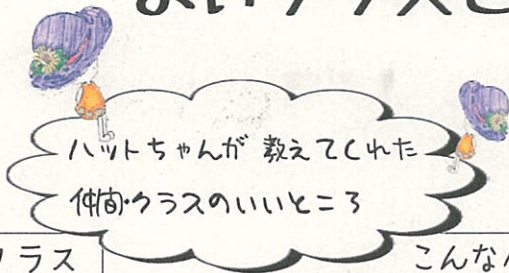 よいクラスと
ハットちゃんが 教えてくれた
仲間・クラスのいいところ
クラス
こんな